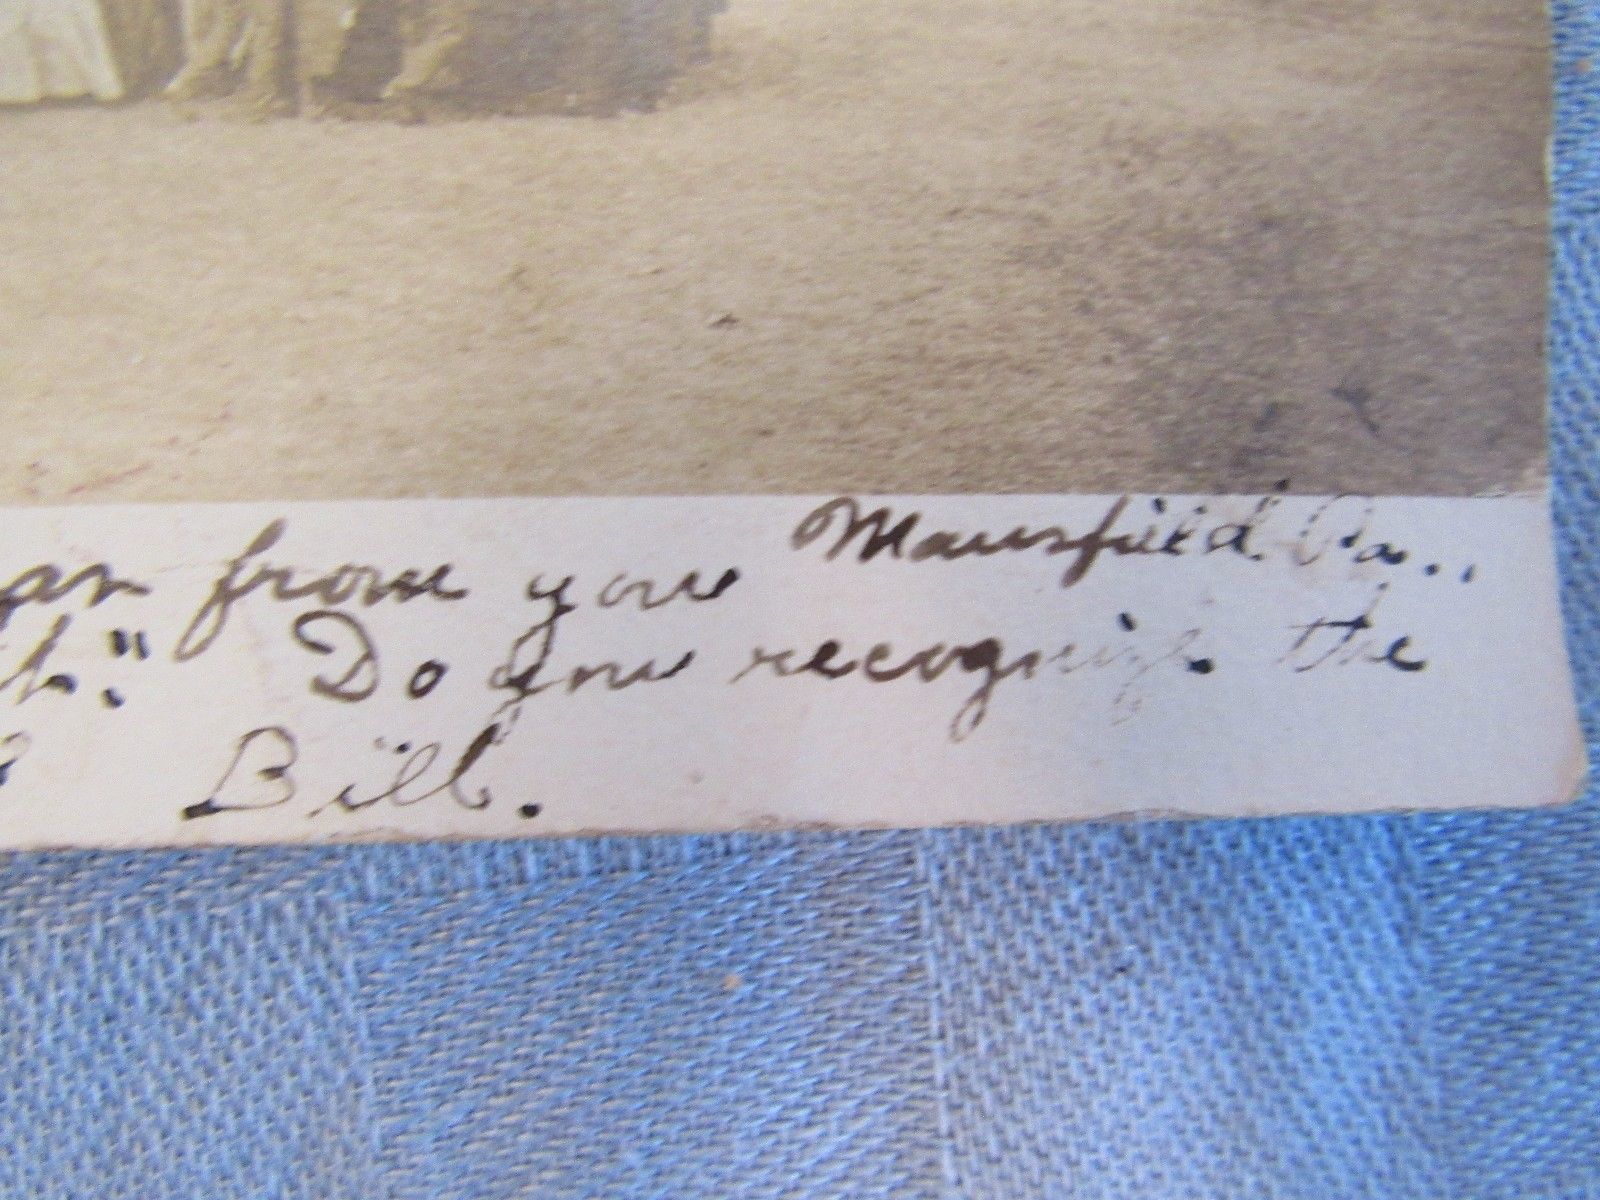 from you Mansfield Pa.,
Do you recognize the
Bill.